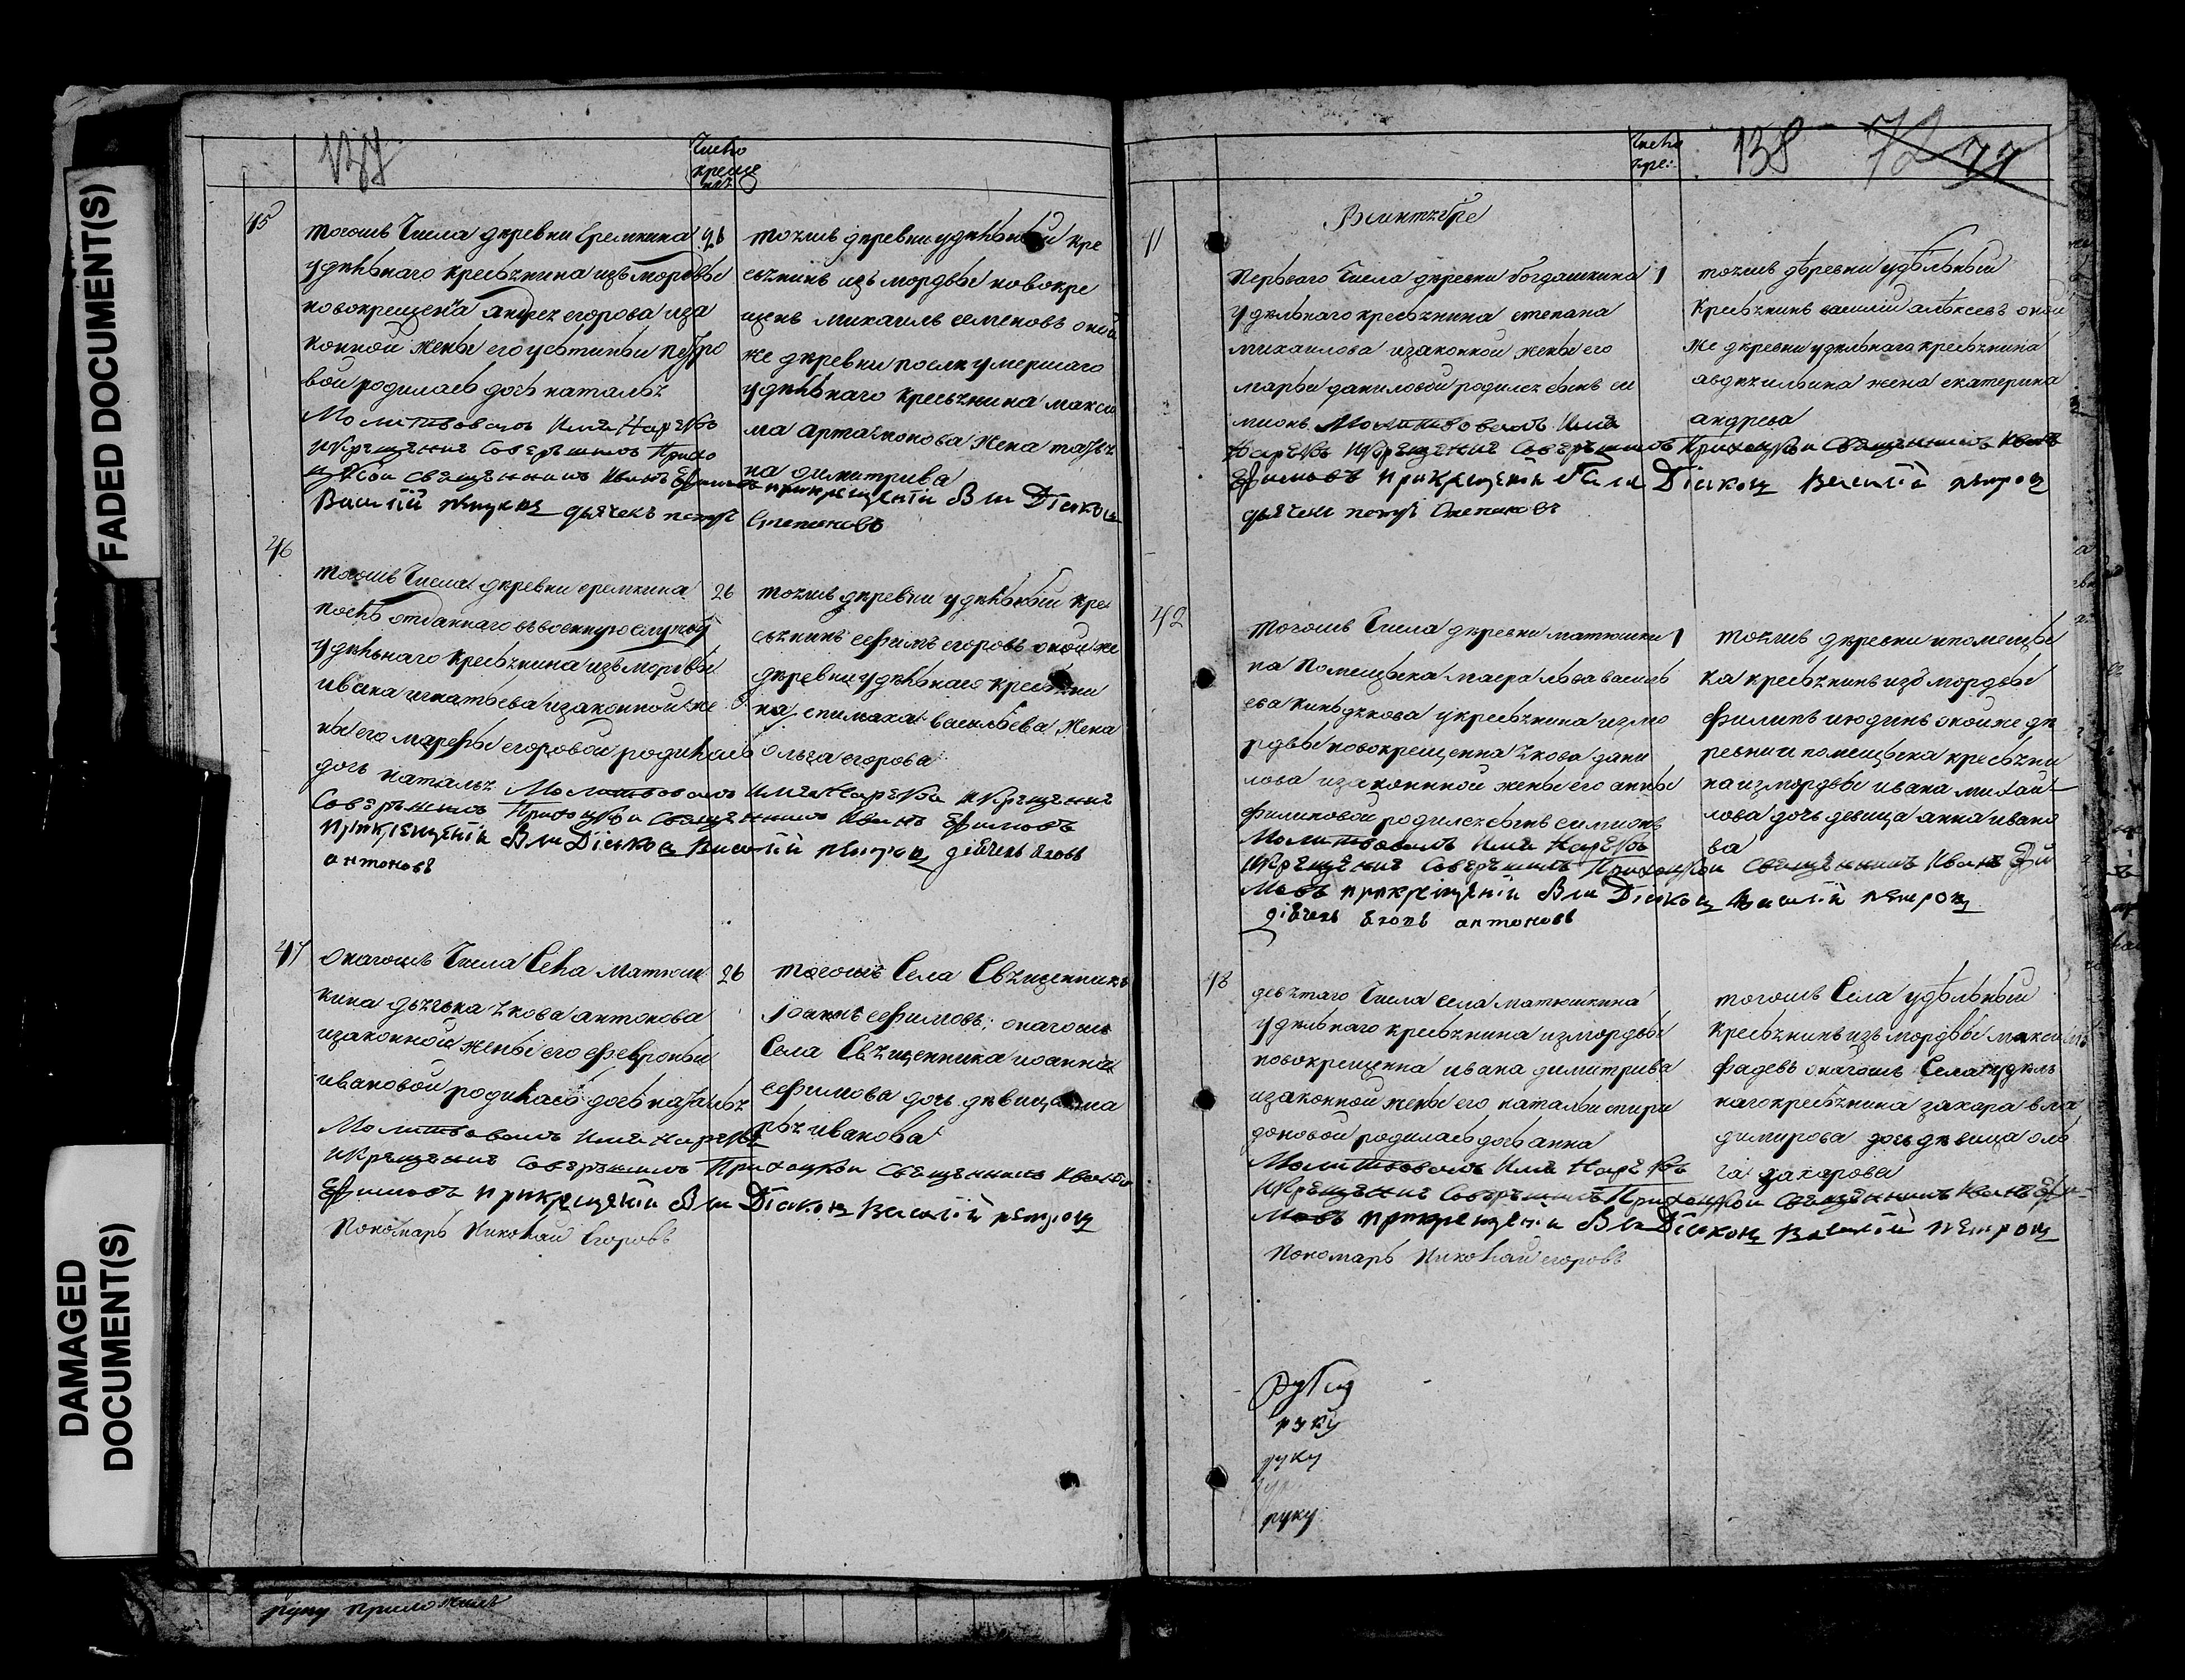 FADED DOCUMENT(S)
DAMAGED
DOCUMENT(S)
137
Число
креще
нія
45
тогожъ Числа деревни Еремкина
удельнаго крестьянина изъ мордвы
новокрещена андрея егорова иза
конной жены его устиньи петро
вой родилась дочь наталья
Молитвовалъ Имя Нарекъ
и Крещение Совершилъ Прихо
цкой Священникъ Иванъ Ефимовъ
при крещеніи Былъ Діаконъ
Василій петровъ дьячекъ петръ
Степановъ
26
тояжъ деревни удельный кре
стьянинъ изъ мордвы новокре
щенъ михаилъ семеновъ оной
же деревни после умершаго
удельнаго крестьянина макси
ма артамонова жена татья
на димитрива
46
тогожъ Числа деревни еремкина
после отданнаго въ военную службу
удельнаго крестьянина изъ мордвы
ивана игнатьева изаконной же
ны его марфы егоровой родилась
дочь наталья Молитвовалъ Имя Нарекъ и Крещение
Совершилъ Прихоцкой Священникъ Иванъ Ефимовъ
при крещеніи Былъ Діаконъ Василій петровъ дьячекъ яковъ
антоновъ
26
тояжъ деревни удельный кре
стьянинъ ефимъ егоровъ оной же
деревни удельнаго крестьяни
на спиильяха васильева жена
ольга егорова
47
онагожъ Числа Села матюш
кина дьячька якова антонова
изаконной жены его февроньи
ивановой родилась дочь наталья
Молитвовалъ Имя нарекъ
и Крещение Совершилъ Прихоцкой Священникъ Иванъ
Ефимовъ при крещеніи Былъ Діаконъ Василій петровъ
Пономарь Николай Егоровъ
26
тогожъ Села Священникъ
Іоаннъ ефимовъ; онагожъ
Села Священника иоанна
ефимова дочь девица ма
рья иванова
Число
кре:
138
72
Въ синтябре
41
Перваго Числа деревни богдашкина
удельнаго крестьянина степана
михаилова изаконной жены его
марьи даниловой родился сынъ си
мионъ Молитвовалъ Имя
Нарекъ и Крещение Совершилъ Прихоцкой Священникъ Иванъ
Ефимовъ при крещеніи Былъ Діаконъ Василій петровъ
дьячекъ петръ Степановъ
1
тояжъ деревни удельный
крестьянинъ василий алексеевъ оной
же деревни удельнаго крестьянина
жена екатерина
андрева
42
тогожъ Числа деревни матюшки
на помещика маера льва василь
ева киньдякова у крестьянина изъ мо
рдвы новокрещенна якова дани
лова изаконнной жены его анны
филиповой родился сынъ симионъ
Молитвовалъ Имя Нарекъ
и Крещение Совершилъ Прихоцкой Священникъ Иванъ Ефи
мовъ при крещеніи Былъ Діаконъ Василій петровъ
дьячекъ яковъ антоновъ
1
тояжъ деревни и помещи
ка крестьянинъ изъ мордвы
филипъ июдинъ оной же де
ревни и помещика крестьяни
на измордвы ивана михаи
лова дочь девица анна ивано
ва
43
девятаго Числа села матюшкина
удельнаго крестьянина измордвы
новокрещенна ивана димитрива
изаконной жены его натальи спири
доновой родилась дочь анна
Молитвовалъ Имя Нарекъ
и Крещение Совершилъ Прихоцкой Священникъ Иванъ Ефи-
мовъ при крещеніи Былъ Діаконъ Василій петровъ
Пономарь Николай егоровъ
тогожъ Села удельный
крестьянинъ изъ мордвы максимъ
фадевъ онагожъ Села удель
наго крестьянина захара вла
димирова дочь девица оль
га захарова
руку
руку
руку
руку приложилъ